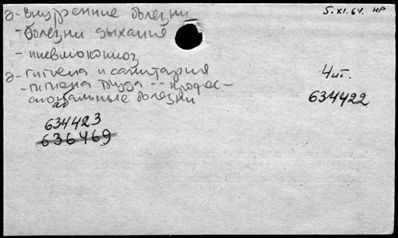 а - внутренние болезни
- болезни дыхания
- пневмокониоз
а - гигиена и санитария
- гигиена труда -- профес-
сиональные болезни
ав
5.XI.64. НР
4 шт.
634422
634423
636469